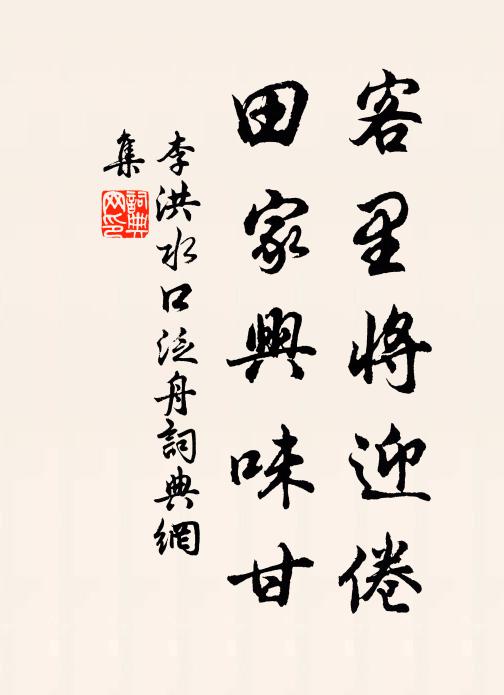 客里將迎倦
田家興味甘
李洪水口泛舟詞典網
集
詞典
网印